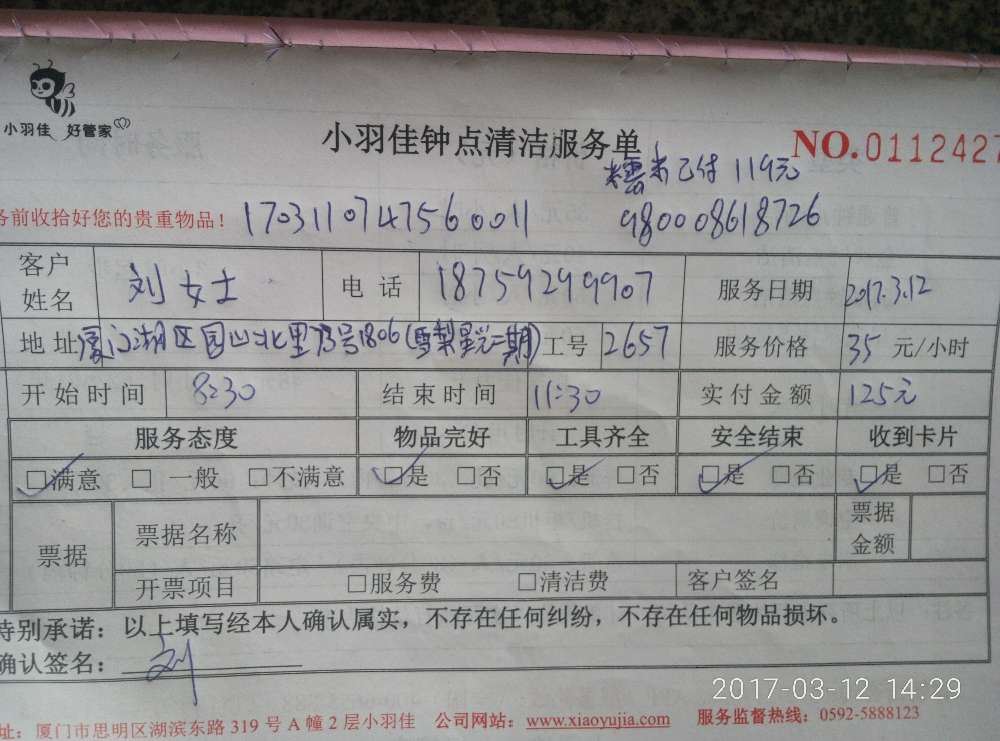 小羽佳 好管家
小羽佳钟点清洁服务单
NO.0112427
糯米已付119元
务前收拾好您的贵重物品！
1703110747560011
980008618726
客户姓名 刘女士 电话 18759249907 服务日期 2017.3.12
地址 厦门湖区园山北里73号1806(雪梨星光二期) 工号 2657 服务价格 35 元/小时
开始时间 8:30 结束时间 11:30 实付金额 125元
服务态度 物品完好 工具齐全 安全结束 收到卡片
☑满意 □一般 □不满意 ☑是 □否 ☑是 □否 ☑是 □否 ☑是 □否
票据 票据名称 票据金额
开票项目 □服务费 □清洁费 客户签名
特别承诺：以上填写经本人确认属实，不存在任何纠纷，不存在任何物品损坏。
确认签名：刘
2017-03-12 14:29
址：厦门市思明区湖滨东路319号A幢2层小羽佳 公司网站：www.xiaoyujia.com 服务监督热线：0592-5888123